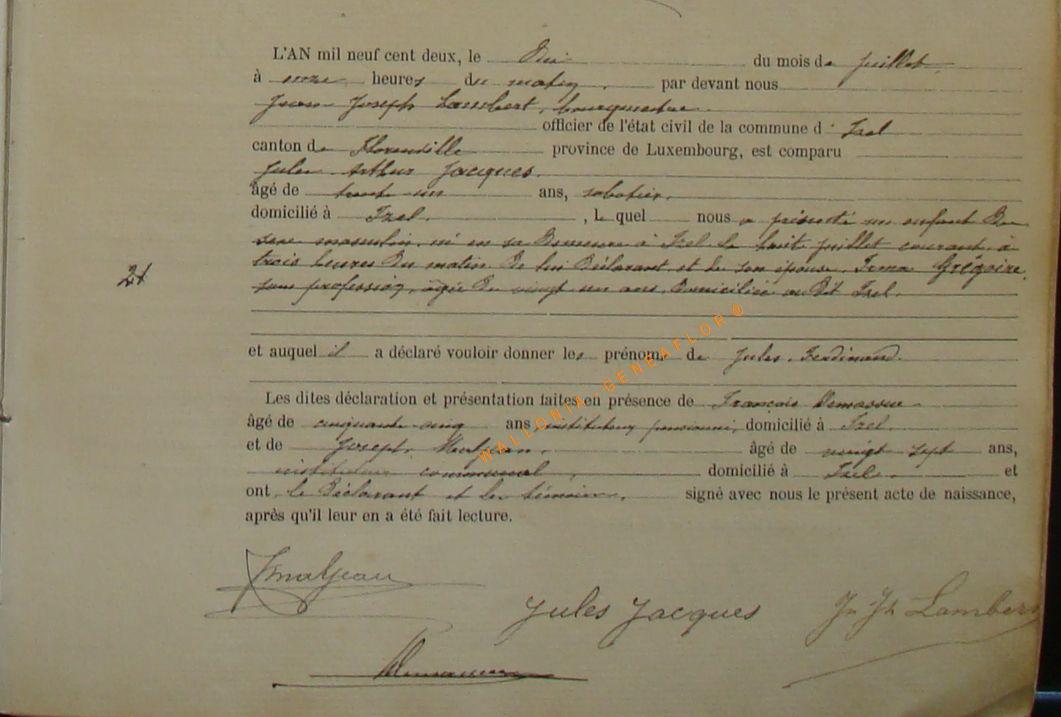 L'AN mil neuf cent deux, le dix du mois de juillet,
à onze heures du matin, par devant nous
Jean Joseph Lambert, bourgmestre
officier de l'état civil de la commune d'Izel
canton de Florenville province de Luxembourg, est comparu
Jules Arthur Jacques,
âgé de trente un ans, sabotier,
domicilié à Izel, lequel nous a présenté un enfant du
sexe masculin, né en sa demeure à Izel le huit juillet courant à
trois heures du matin de lui déclarant et de son épouse Irma Grégoire,
21
sans profession, âgée de vingt un ans, domiciliée au dit Izel.
et auquel il a déclaré vouloir donner les prénoms de Jules Ferdinand.
Les dites déclaration et présentation faites en présence de François
âgé de cinquante cinq ans instituteur pensionné, domicilié à Izel
et de Joseph Maljean, âgé de vingt sept ans,
instituteur communal, domicilié à Izel et
ont le déclarant et les témoins, signé avec nous le présent acte de naissance,
après qu'il leur en a été fait lecture.
JMaljean
Jules Jacques
Jn Jh Lambert
WALLONIA GENEAFLOR®